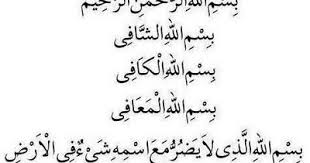 بِسْمِ اللهِ الرَّحْمٰنِ الرَّحِيْمِ
بِسْمِ اللهِ الشَّافِى
بِسْمِ اللهِ الْكَافِى
بِسْمِ اللهِ الْمَعَافِى
بِسْمِ اللهِ الَّذِى لَا يَضُرُّ مَعَ اسْمِهِ شَيْءٌ فِى الْاَرْضِ